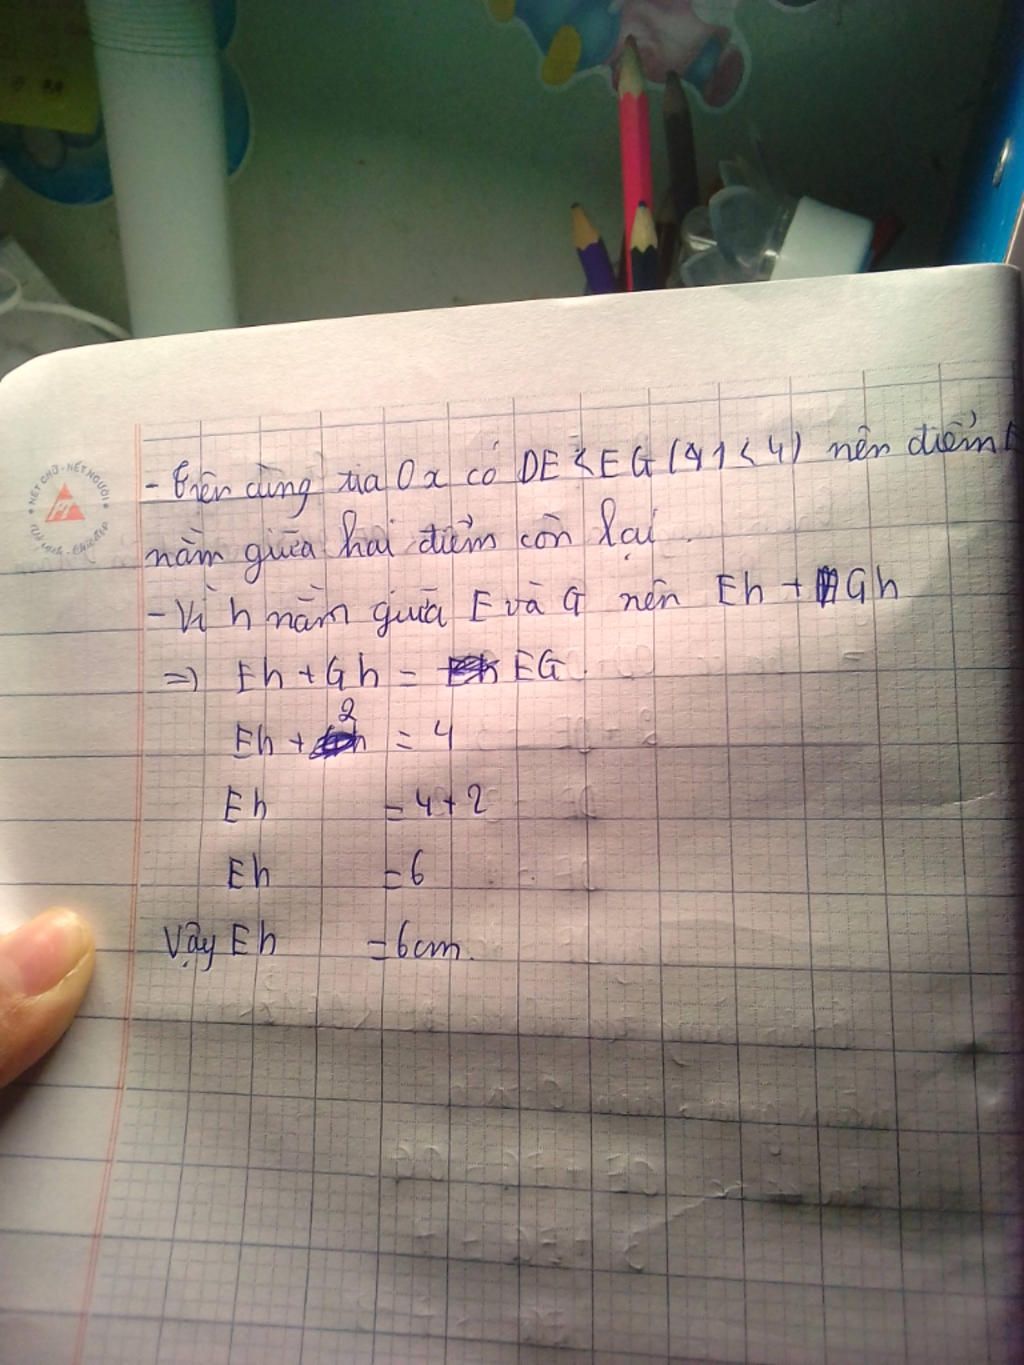 - Trên cùng tia Ox có DE < EG (1 < 4) nên điểm
nằm giữa hai điểm còn lại.
- Vì h nằm giữa E và G nên Eh + Gh
=
=> Eh + Gh = EG.
Eh + 2 = 4
Eh = 4 + 2
Eh = 6
Vậy Eh = 6cm.
NÉT CHỮ - NẾT NGƯỜI